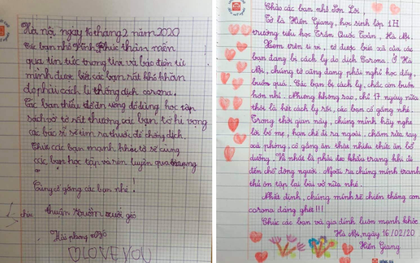 Hà nội, ngày 16 tháng 2 năm 2020
Các bạn nhỏ Vĩnh Phúc thân mến
qua tin tức trong ti vi và báo điện tử
mình được biết các bạn rất khó khăn
do phải cách li thống dịch corona.
Các bạn thiếu đồ ăn uống đồ dùng, học tập
sách vở tớ rất thương các bạn, tớ hi vọng
các bác sĩ sẽ tìm ra thuốc để chống dịch.
Chúc các bạn mạnh khỏe tớ sẽ cùng
các bạn học tập và rèn luyện qua mạng
Cùng cố gắng các bạn nhé!
I LOVE YOU
Chào các bạn nhỏ Sơn Lôi
Tớ là Hiền Giang, học sinh lớp 1H
trường tiểu học Trần Quốc Toản, Hà Nội.
Xem trên ti vi, tớ được biết cả các
bạn đang bị cách ly do dịch Corona. Ở Hà
Nội, chúng tớ cũng đang phải nghỉ học đấy
buồn quá. Các bạn bị cách ly, chắc còn buồn
hơn nhỉ. Nhưng không sao, chỉ 17 ngày nữa
thôi là hết cách ly rồi, các bạn cố gắng nhé.
Trong thời gian này, chúng mình hãy nghe
lời bố mẹ, hạn chế đi ra ngoài, chăm rửa tay
xà phòng, cố gắng ăn thật nhiều thức ăn bổ
dưỡng. Và nhất là phải đeo khẩu trang khi đi
đến chỗ đông người. Ngoài ra chúng mình tranh
thủ ôn tập lại bài vở nữa nhé.
Nhất định, chúng mình sẽ chiến thắng con
corona đáng ghét!!!
Chúc các bạn và gia đình luôn mạnh khỏe.
Hà Nội, ngày 16/02/20
Hiền Giang